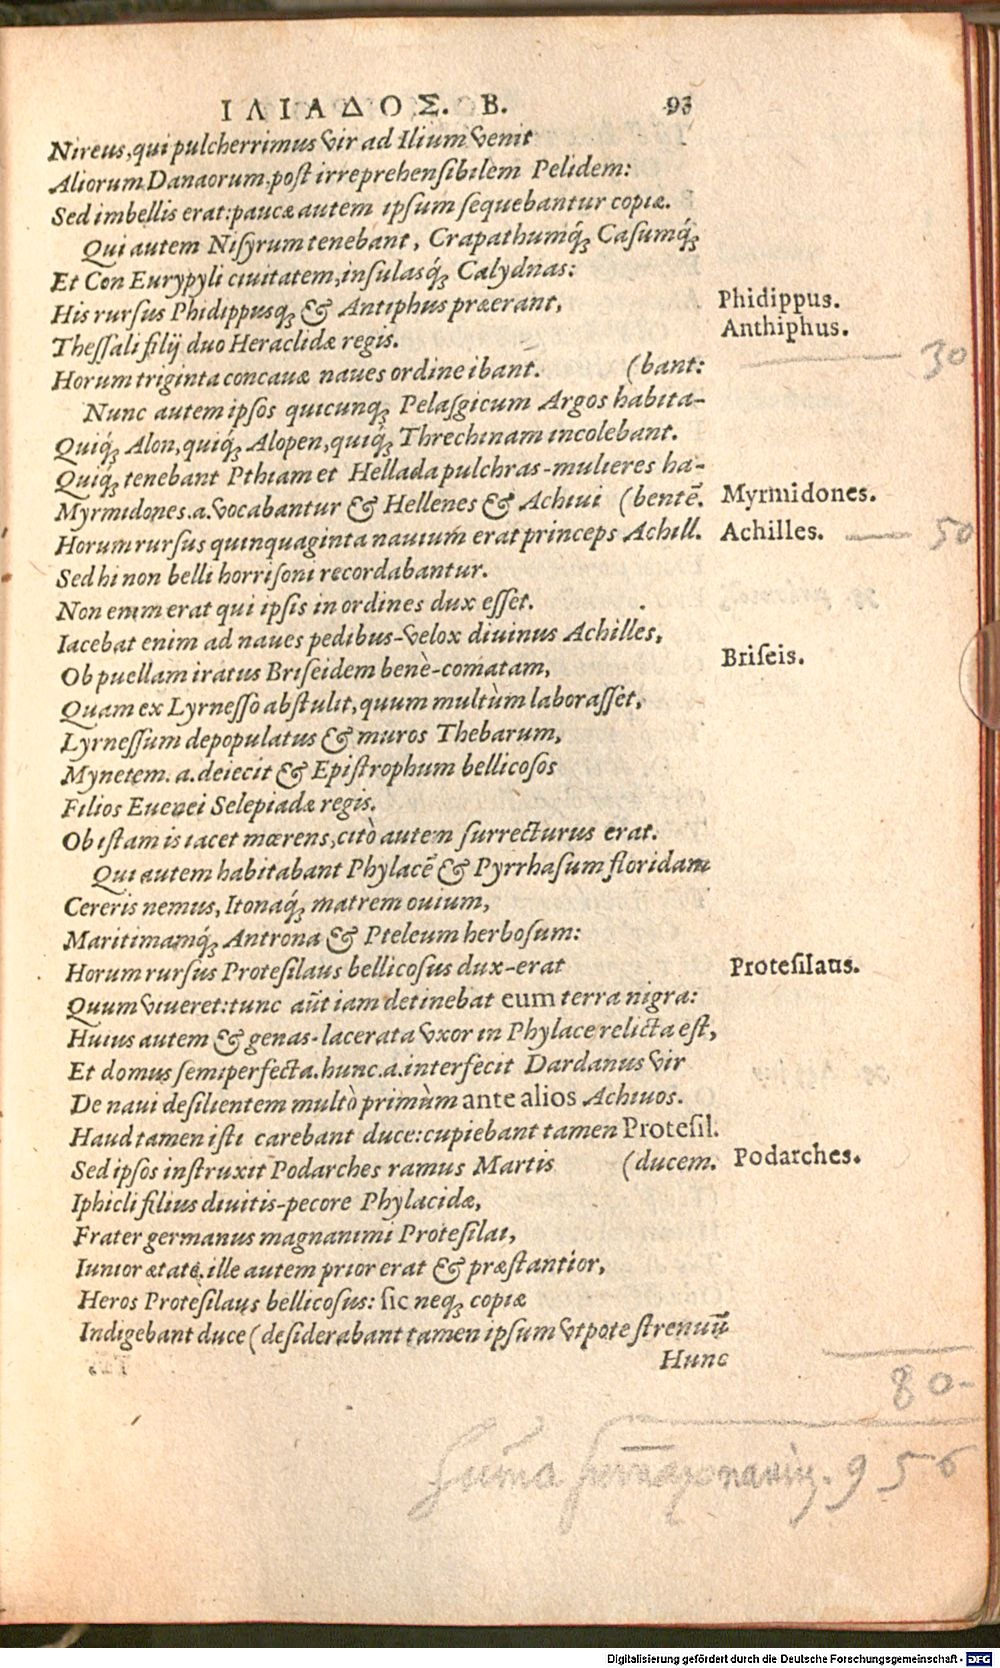 ΙΛΙΑΔΟΣ. Β. 93
Nireus, qui pulcherrimus vir ad Ilium venit
Aliorum Danaorum, post irreprehensibilem Pelidem:
Sed imbellis erat: paucæ autem ipsum sequebantur copiæ.
Qui autem Nisyrum tenebant, Crapathumq́; Casumq́;
Et Con Eurypyli ciuitatem, insulasq́; Calydnas:
His rursus Phidippusq; & Antiphus præerant,
Phidippus.
Anthiphus.
Thessali filij duo Heraclidæ regis.
Horum triginta concauæ naues ordine ibant. (bant:
30
Nunc autem ipsos quicunq; Pelasgicum Argos habita-
Quiq́; Alon, quiq́; Alopen, quiq́; Threchinam incolebant.
Quiq́; tenebant Pthiam et Hellada pulchras-mulieres ha-
Myrmidones .a. vocabantur & Hellenes & Achiui (bentē.
Myrmidones.
Horum rursus quinquaginta nauium erat princeps Achill.
Achilles. 50
Sed hi non belli horrisoni recordabantur.
Non enim erat qui ipsis in ordines dux esset.
Iacebat enim ad naues pedibus-velox diuinus Achilles,
Ob puellam iratus Briseidem benè-comatam,
Briseis.
Quam ex Lyrnesso abstulit, quum multùm laborasset,
Lyrnessum depopulatus & muros Thebarum,
Mynetem .a. deiecit & Epistrophum bellicosos
Filios Euenei Selepiadæ regis.
Ob istam is iacet mœrens, citò autem surrecturus erat.
Qui autem habitabant Phylacē & Pyrrhasum floridam
Cereris nemus, Itonaq́; matrem ouium,
Maritimamq́; Antrona & Pteleum herbosum:
Horum rursus Protesilaus bellicosus dux-erat
Protesilaus.
Quum viueret: tunc aūt iam detinebat eum terra nigra:
Huius autem & genas-lacerata vxor in Phylace relicta est,
Et domus semiperfecta. hunc .a. interfecit Dardanus vir
De naui desilientem multò primùm ante alios Achiuos.
Haud tamen isti carebant duce: cupiebant tamen Protesil.
Sed ipsos instruxit Podarches ramus Martis (ducem.
Podarches.
Iphicli filius diuitis-pecore Phylacidæ,
Frater germanus magnanimi Protesilai,
Iunior ætate. ille autem prior erat & præstantior,
Heros Protesilaus bellicosus: sic neq; copiæ
Indigebant duce (desiderabant tamen ipsum vtpote strenuū
Hunc
80-
Suma 956
Digitalisierung gefördert durch die Deutsche Forschungsgemeinschaft - DFG